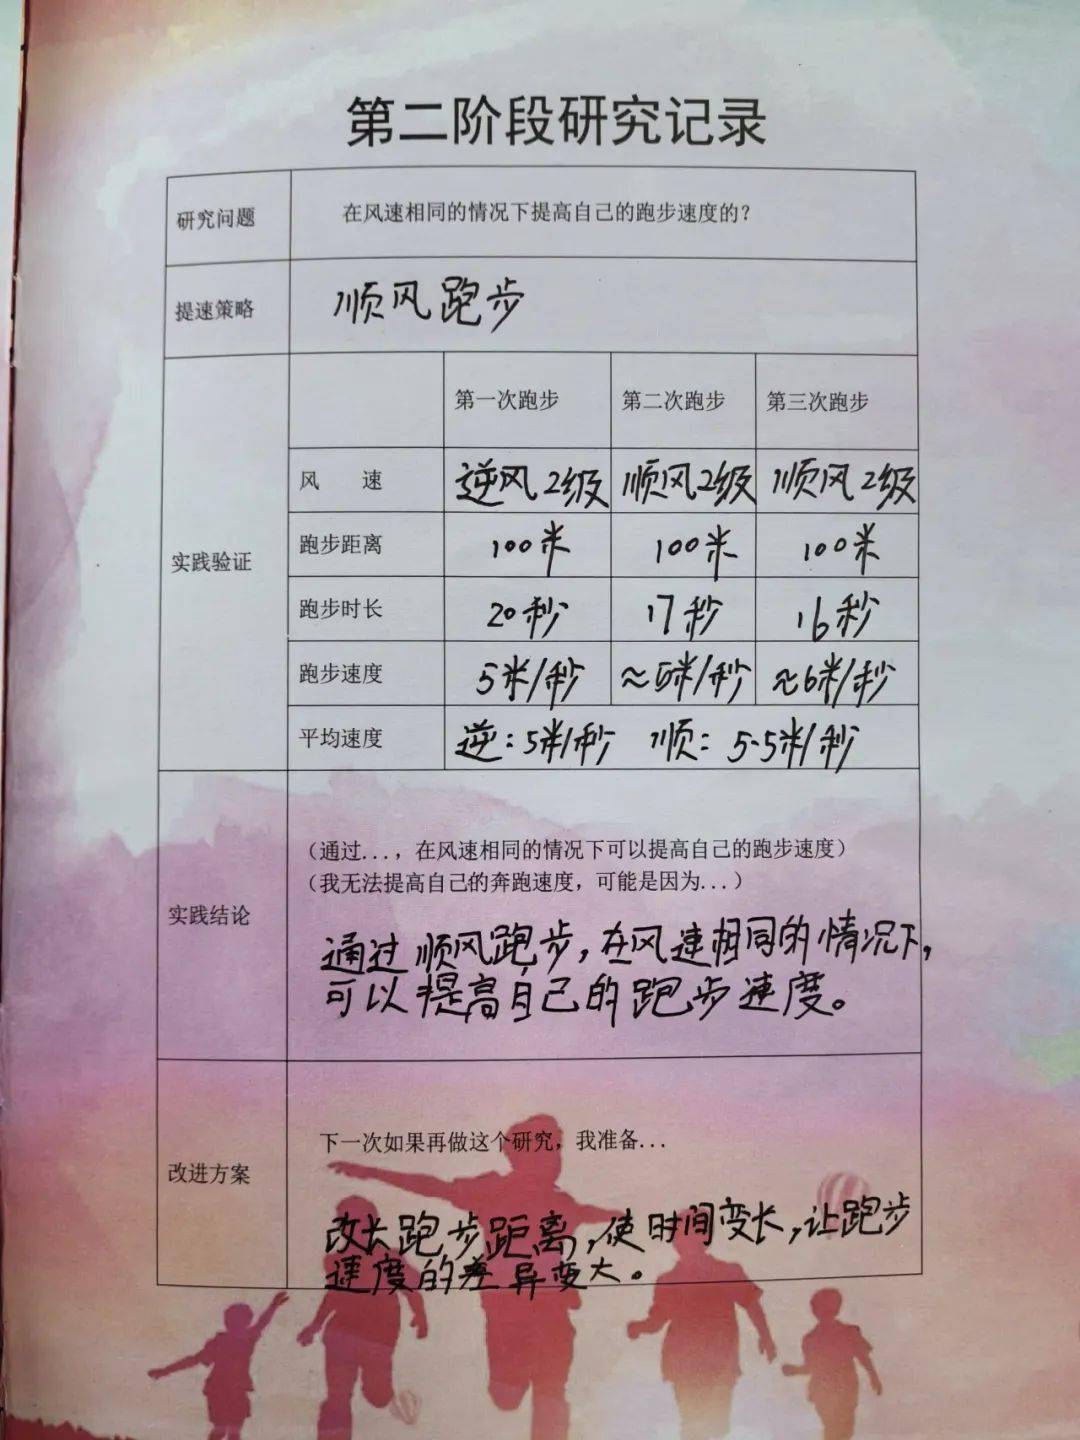 第二阶段研究记录
研究问题 在风速相同的情况下提高自己的跑步速度的？
提速策略 顺风跑步
第一次跑步 第二次跑步 第三次跑步
风 速 逆风2级 顺风2级 顺风2级
实践验证
跑步距离 100米 100米 100米
跑步时长 20秒 17秒 16秒
跑步速度 5米/秒 ≈5米/秒 ≈6米/秒
平均速度 逆：5米/秒 顺：5.5米/秒
（通过...，在风速相同的情况下可以提高自己的跑步速度）
（我无法提高自己的奔跑速度，可能是因为...）
实践结论
通过顺风跑步，在风速相同的情况下，
可以提高自己的跑步速度。
下一次如果再做这个研究，我准备...
改进方案
改长跑步距离，使时间变长，让跑步
速度的差异变大。